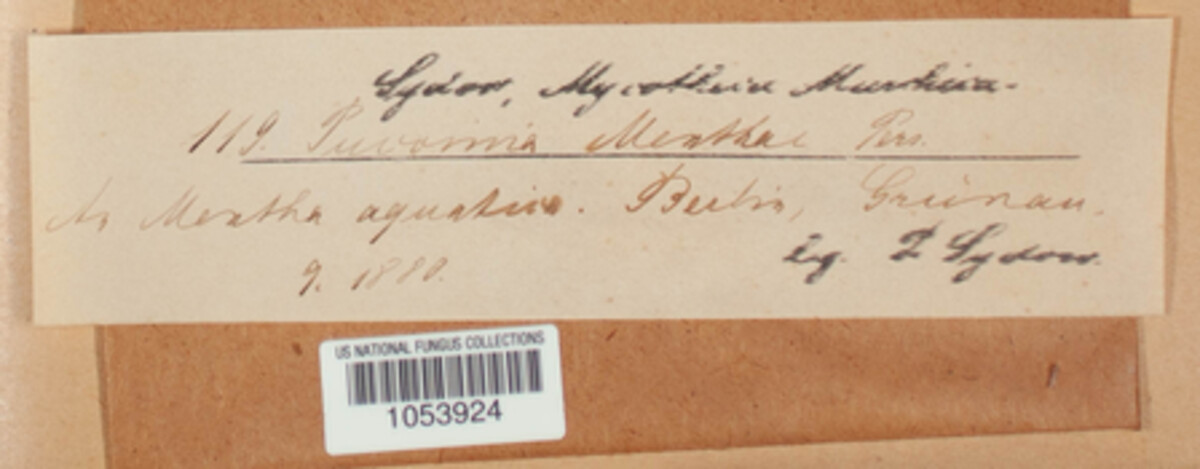 Sydow, Mycotheca Marchica.
119. Puccinia Menthae Pers.
An Mentha aquatica. Berlin, Grünau.
leg. P Sydow.
9. 1880.
US NATIONAL FUNGUS COLLECTIONS
1053924